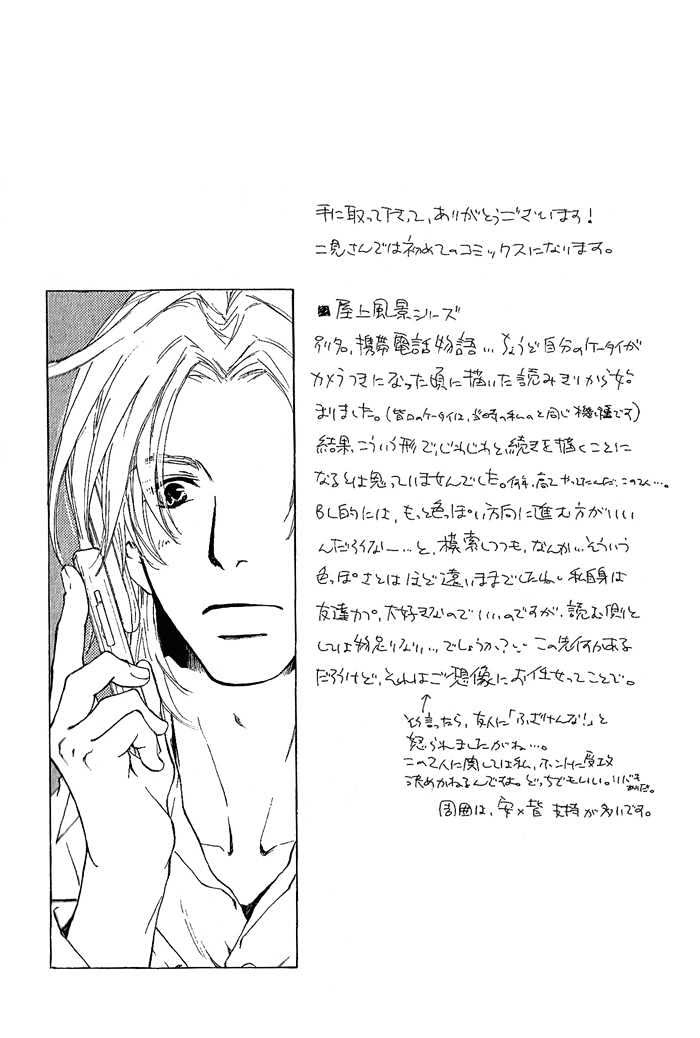 手に取って下さって、ありがとうございます!
二見さんでは初めてのコミックスになります。
屋上風景シリーズ
別名、携帯電話物語…ちょうど自分のケータイが
カメラつきになった頃に描いた読みきりから始
まりました。(皆口のケータイは、当時の私のと同じ機種です)
結果、こういう形でじわじわと続きを描くことに
なるとは思っていませんでした。何年、みてやってたんだ、この2人…。
BL的には、もっと色っぽい方向に進む方がいい
んだろうなー…と、模索しつつも、なんか…そういう
色っぽさとはほど遠いままでしたね。私自身は
友達カプ。大好きなのでいいのですが、読む側と
しては物足りない…でしょうか?この先何かある
だろうけど、それはご想像にお任せってことで。
↑
と言ったら、友人に「ふざけんな!」と
怒られましたがね…。
この2人に関しては私、ホントに受攻
決めかねるんですよ。どっちでもいい。リバでも
周囲は、安×皆 支持が多いです。